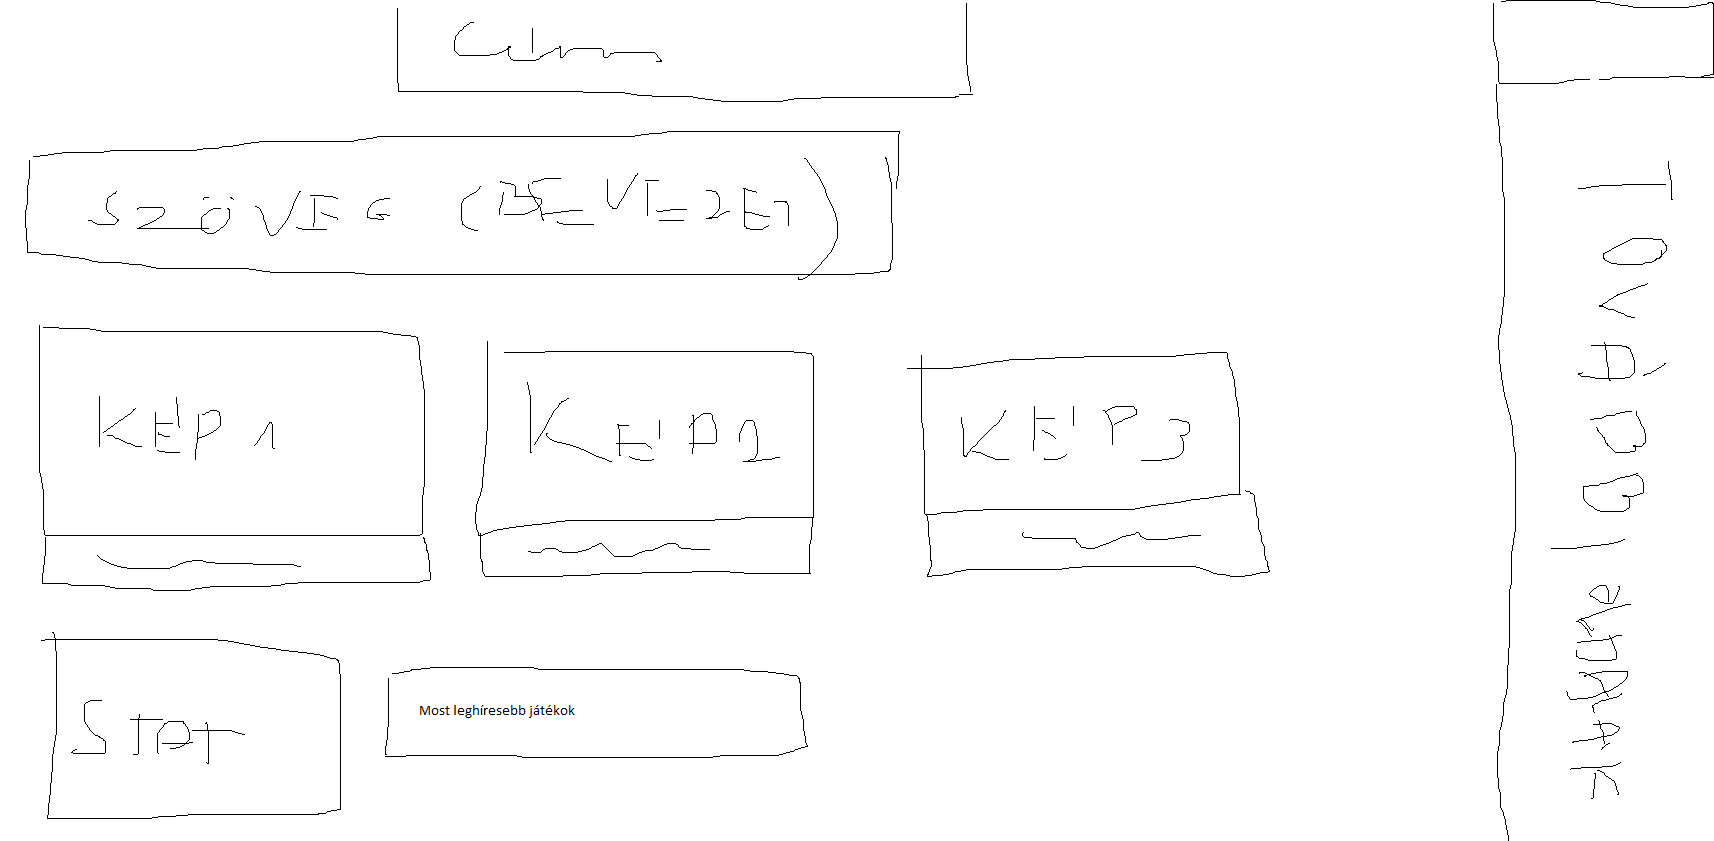 SZÖVEG (BEVEZET)
KÉP 1
KÉP 2
KÉP 3
STAT
Most leghíresebb játékok
TOVÁBBI